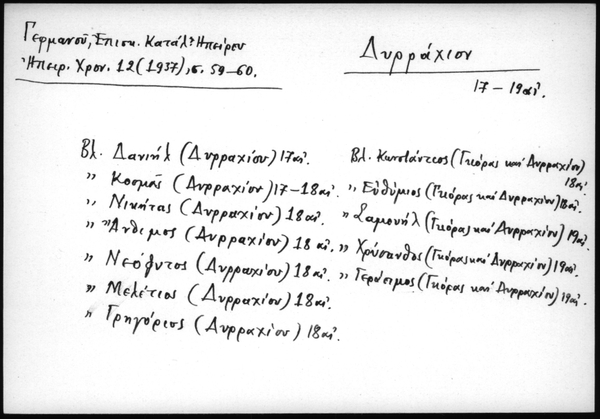 Γερμανοῦ, Ἐπισκ. Κατάλ. Ἠπείρου
Ἠπειρ. Χρον. 12 (1937), σ. 59-60.
Δυρράχιον
17 - 19 αἰ.
Βλ. Δανιήλ (Δυρραχίου) 17 αἰ.
" Κοσμᾶς (Δυρραχίου) 17-18 αἰ.
" Νικήτας (Δυρραχίου) 18 αἰ.
" Ἄνθιμος (Δυρραχίου) 18 αἰ.
" Νεόφυτος (Δυρραχίου) 18 αἰ.
" Μελέτιος (Δυρραχίου) 18 αἰ.
" Γρηγόριος (Δυρραχίου) 18 αἰ.
Βλ. Κωνστάντιος (Γκόρας καὶ Δυρραχίου)
18 αἰ.
" Εὐθύμιος (Γκόρας καὶ Δυρραχίου) 18 αἰ.
" Σαμουήλ (Γκόρας καὶ Δυρραχίου) 19 αἰ.
" Χρύσανθος (Γκόρας καὶ Δυρραχίου) 19 αἰ.
" Γεράσιμος (Γκόρας καὶ Δυρραχίου) 19 αἰ.